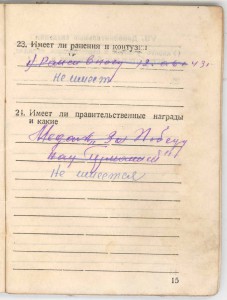 23. Имеет ли ранения и контузии
Не имеет
24. Имеет ли правительственные награды
и какие
Медаль „За Победу
над Германией"
Не имеется
15